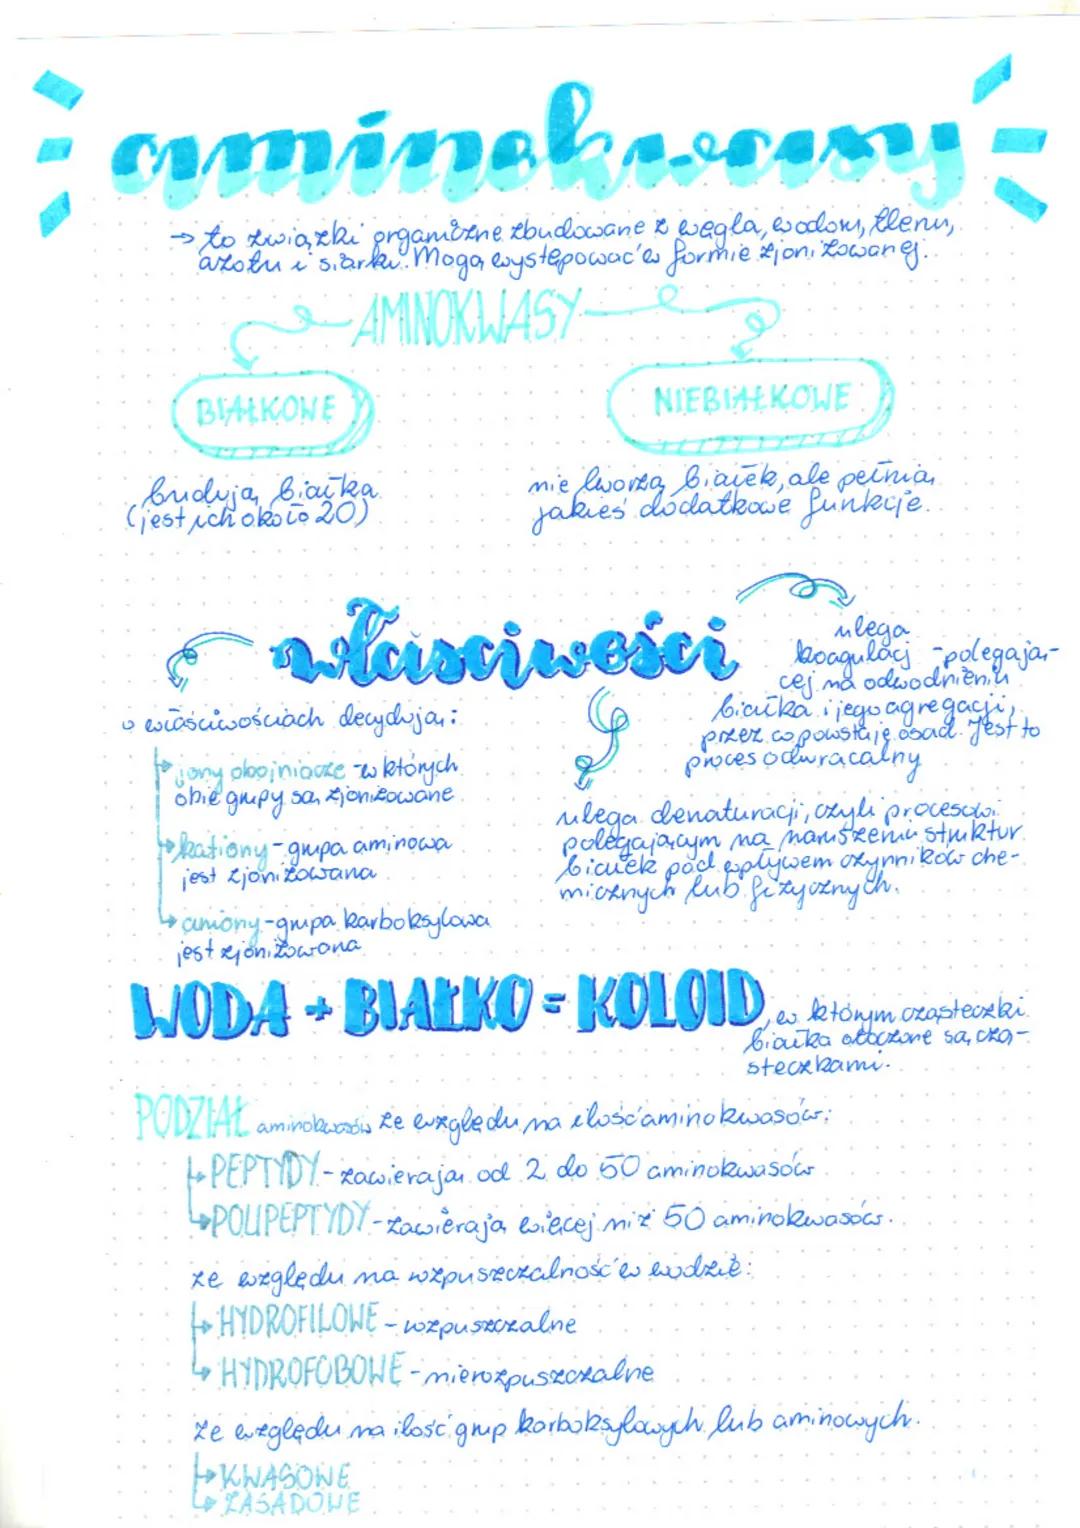 aminokwasy
→ to związki organiczne zbudowane z węgla, wodoru, tlenu,
azotu i siarki. Mogą występować w formie zjonizowanej.
AMINOKWASY
BIAŁKOWE
NIEBIAŁKOWE
budują białka
(jest ich około 20)
nie tworzą białek, ale pełnią
jakieś dodatkowe funkcje.
właściwości
o właściwościach decydują:
jony obojniacze - w których
obie grupy są zjonizowane
kationy - grupa aminowa
jest zjonizowana
aniony - grupa karboksylowa
jest zjonizowana
ulega
koagulacj - polegają-
cej na odwodnieniu
białka i jego agregacji,
przez co powstaję osad. Jest to
proces odwracalny
ulega denaturacji, czyli procesowi
polegającym na naruszeniu struktur
białek pod wpływem czynników che-
micznych lub fizycznych.
WODA + BIAŁKO = KOLOID
, w którym cząsteczki
białka otoczone są czą-
steczkami.
PODZIAŁ aminokwasów ze względu na ilość aminokwasów:
PEPTYDY - zawierają od 2 do 50 aminokwasów
POLIPEPTYDY - zawierają więcej niż 50 aminokwasów.
ze względu na rozpuszczalność w wodzie:
HYDROFILOWE - rozpuszczalne
HYDROFOBOWE - nierozpuszczalne
ze względu na ilość grup karboksylowych lub aminowych.
KWASOWE
ZASADOWE